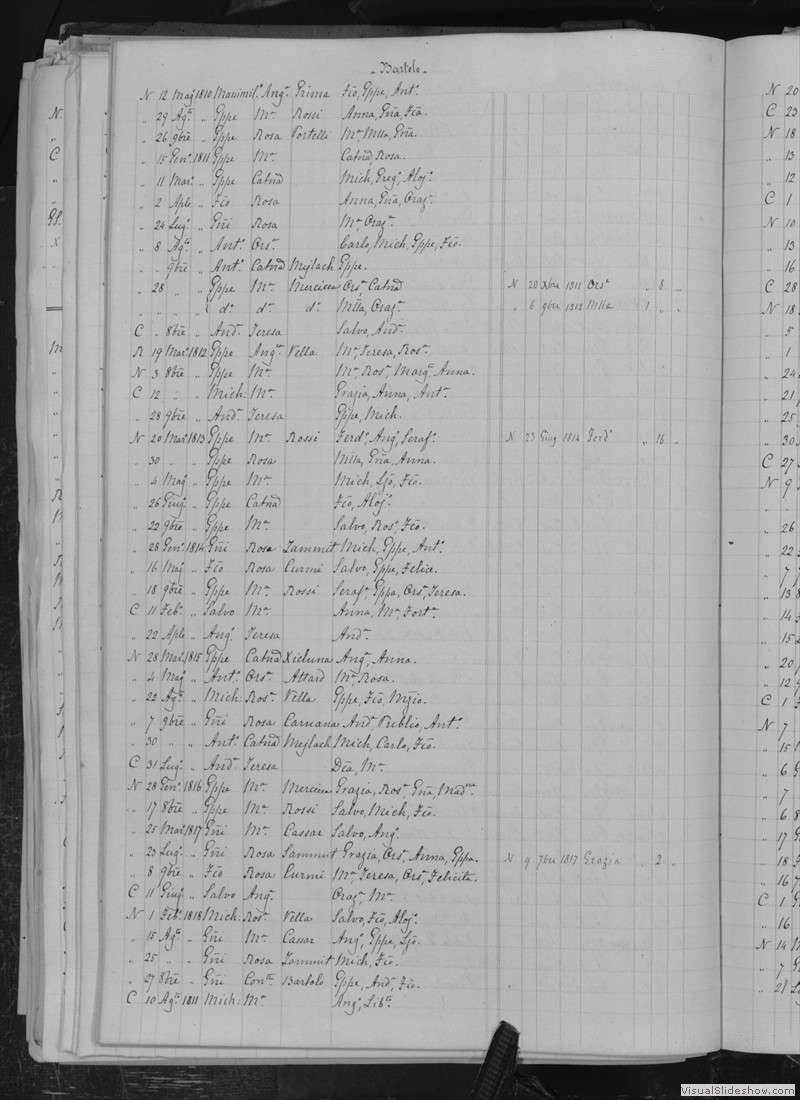 Bartolo
N 12 Magº 1810 Maximilº Angª Grima Fco, Gppe, Antº
„ 29 Agtº „ Gppe Mª Rossi Anna, Gña, Fca.
„ 26 9bre „ Gppe Rosa Portelli Mª, Mlla, Gña.
„ 15 Gen. 1811 Gppe Mª Catnã, Rosa.
„ 11 Mar. „ Gppe Catnã Mich, Gregº, Alojº
„ 2 Aple „ Fco Rosa Anna, Gña, Orazª
„ 24 Lugº „ Gñi Rosa Mª, Orazª
„ 8 Agtº „ Antº Orsª Carlo, Mich, Gppe, Fco.
„ „ 9bre „ Antº Catnã Mejlach Gppe.
„ 28 „ „ Gppe Mª Mercieca Orsª, Catnã N 20 Xbre 1811 Orsª „ 8 „
„ „ „ „ dº dª dº Mlla, Orazª „ 6 9bre 1812 Mlla 1 „ „
C „ 8bre „ Andª Teresa Salvo, Andª
R 19 Mar. 1812 Gppe Angª Vella Mª, Teresa, Rosª
N 3 8bre „ Gppe Mª Mª, Rosª, Margª, Anna.
C 12 „ „ Mich: Mª Grazia, Anna, Antª
„ 28 9bre „ Andª Teresa Gppe, Mich.
N 20 Mar. 1813 Gppe Mª Rossi Ferdº, Angª, Serafª N 23 Giug 1814 Ferdº „ 16 „
„ 30 „ „ Gppe Rosa Mlla, Gña, Anna.
„ 4 Magº „ Gppe Mª Mich, Ljo, Fco.
„ 26 Giugº „ Gppe Catnã Fco, Alojº
„ 22 9bre „ Gppe Mª Salvo, Rosª, Fco.
„ 28 Gen. 1814 Gñi Rosa Zammit Mich, Gppe, Antº
„ 16 Magº „ Fco Rosa Curmi Salvo, Gppe, Felice.
„ 18 9bre „ Gppe Mª Rossi Serafª, Gppa, Orsª, Teresa.
C 11 Febº „ Salvo Mª Anna, Mª, Fortª
„ 22 Aple „ Angº Teresa Andª
N 28 Mar. 1815 Gppe Catnã Xicluna Angª, Anna.
„ 4 Magº „ Antº Orsª Attard Mª, Rosa.
„ 22 Agtº „ Mich: Rosª Vella Gppe, Fco,
„ 7 9bre „ Gñi Rosa Caruana Andª, Publio, Antº
„ 30 „ „ Antº Catnã Mejlach Mich, Carlo, Fco.
C 31 Lugº „ Andª Teresa Dca, Mª
N 28 Gen. 1816 Gppe Mª Mercieca Grazia, Rosª, Gña,
„ 17 8bre „ Gppe Mª Rossi Salvo, Mich, Fco.
„ 25 Mar. 1817 Gñi Mª Cassar Salvo, Angº
„ 23 Lugº „ Gñi Rosa Sammut Grazia, Orsª, Anna, Gppa. N 9 7bre 1817 Grazia „ 2 „
„ 8 9bre „ Fco Rosa Curmi Mª, Teresa, Orsª, Felicita.
C 11 Giugº „ Salvo Angª Orazª, Mª
N 1 Febº 1818 Mich: Rosª Vella Salvo, Fco, Alojº
„ 15 Agtº „ Gñi Mª Cassar Angº, Gppe, Ljo.
„ 25 „ „ Gñi Rosa Zammit Mich, Fco.
„ 27 8bre „ Gñi Conª Bartolo Gppe, Andª, Fco.
C 10 Agtº 1811 Mich: Mª Angª, Libª
VisualSlideshow.com